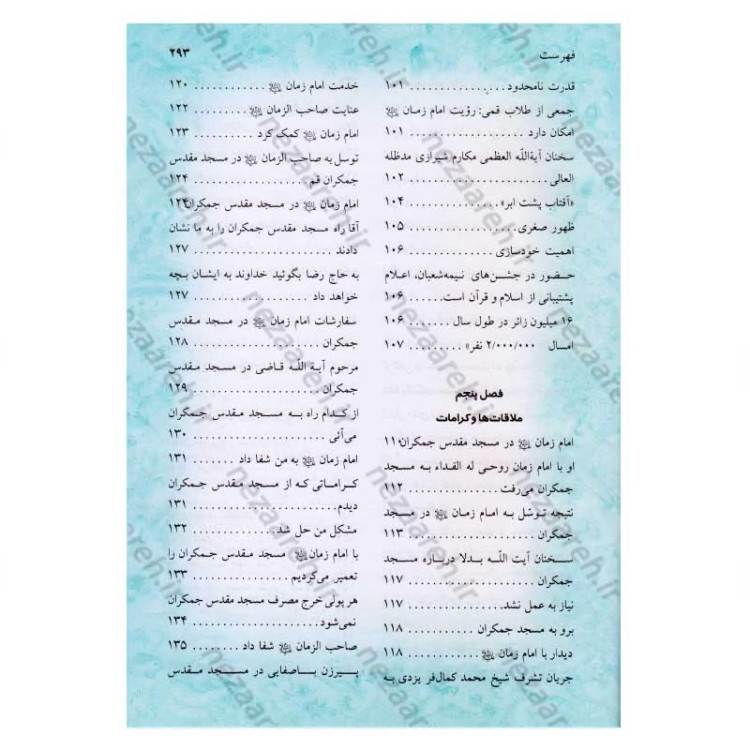 فهرست ۲۹۳
قدرت نامحدود. . . . . . . . . . . . . . . . ۱۰۱
جمعی از طلاب قمی: رؤیت امام زمان
امکان دارد . . . . . . . . . . . . . . . . . . ۱۰۱
سخنان آیة‌اللّه العظمی مکارم شیرازی مدظله
العالی . . . . . . . . . . . . . . . . . . . . . . ۱۰۲
«آفتاب پشت ابر». . . . . . . . . . . . . ۱۰۴
ظهور صغری . . . . . . . . . . . . . . . . . ۱۰۵
اهمیت خودسازی . . . . . . . . . . . . . ۱۰۶
حضور در جشن‌های نیمه‌شعبان، اعلام
پشتیبانی از اسلام و قرآن است. . . . . . ۱۰۶
۱۶ میلیون زائر در طول سال . . . . . . . ۱۰۶
امسال ۲/۰۰۰/۰۰۰ نفر» . . . . . . . . . . ۱۰۷
فصل پنجم
ملاقات‌ها و کرامات
امام زمان در مسجد مقدس جمکران ۱۱۱
او با امام زمان روحی له الفداء به مسجد
جمکران می‌رفت . . . . . . . . . . . . . . ۱۱۲
نتیجه توسّل به امام زمان در مسجد
جمکران . . . . . . . . . . . . . . . . . . . . ۱۱۳
سخنان آیت اللّه بدلا درباره مسجد
جمکران . . . . . . . . . . . . . . . . . . . . ۱۱۷
نیاز به عمل نشد. . . . . . . . . . . . . . . ۱۱۷
برو به مسجد جمکران . . . . . . . . . . . ۱۱۸
دیدار با امام زمان . . . . . . . . . . . . ۱۱۸
جریان تشرف شیخ محمد کمال‌فر یزدی به
خدمت امام زمان . . . . . . . . . . . . ۱۲۰
عنایت صاحب الزمان . . . . . . . . . ۱۲۲
امام زمان کمک کرد . . . . . . . . . . ۱۲۳
توسل به صاحب الزمان در مسجد مقدس
جمکران قم . . . . . . . . . . . . . . . . . . ۱۲۴
امام زمان در مسجد مقدس جمکران ۱۲۴
آقا راه مسجد مقدس جمکران را به ما نشان
دادند . . . . . . . . . . . . . . . . . . . . . . ۱۲۷
به حاج رضا بگوئید خداوند به ایشان بچه
خواهد داد . . . . . . . . . . . . . . . . . . ۱۲۷
سفارشات امام زمان در مسجد مقدس
جمکران . . . . . . . . . . . . . . . . . . . . ۱۲۸
مرحوم آیة اللّه قاضی در مسجد مقدس
جمکران . . . . . . . . . . . . . . . . . . . . ۱۲۹
از کدام راه به مسجد مقدس جمکران
می‌آئی . . . . . . . . . . . . . . . . . . . . . ۱۳۰
امام زمان به من شفا داد . . . . . . . ۱۳۱
کراماتی که از مسجد مقدس جمکران
دیدم. . . . . . . . . . . . . . . . . . . . . . . ۱۳۱
مشکل من حل شد. . . . . . . . . . . . . . ۱۳۲
با امام زمان مسجد مقدس جمکران را
تعمیر می‌کردیم . . . . . . . . . . . . . . . ۱۳۳
هر پولی خرج مصرف مسجد مقدس جمکران
نمی‌شود . . . . . . . . . . . . . . . . . . . . ۱۳۴
صاحب الزمان شفا داد . . . . . . . . ۱۳۵
پیرزن باصفایی در مسجد مقدس
nezaareh.ir